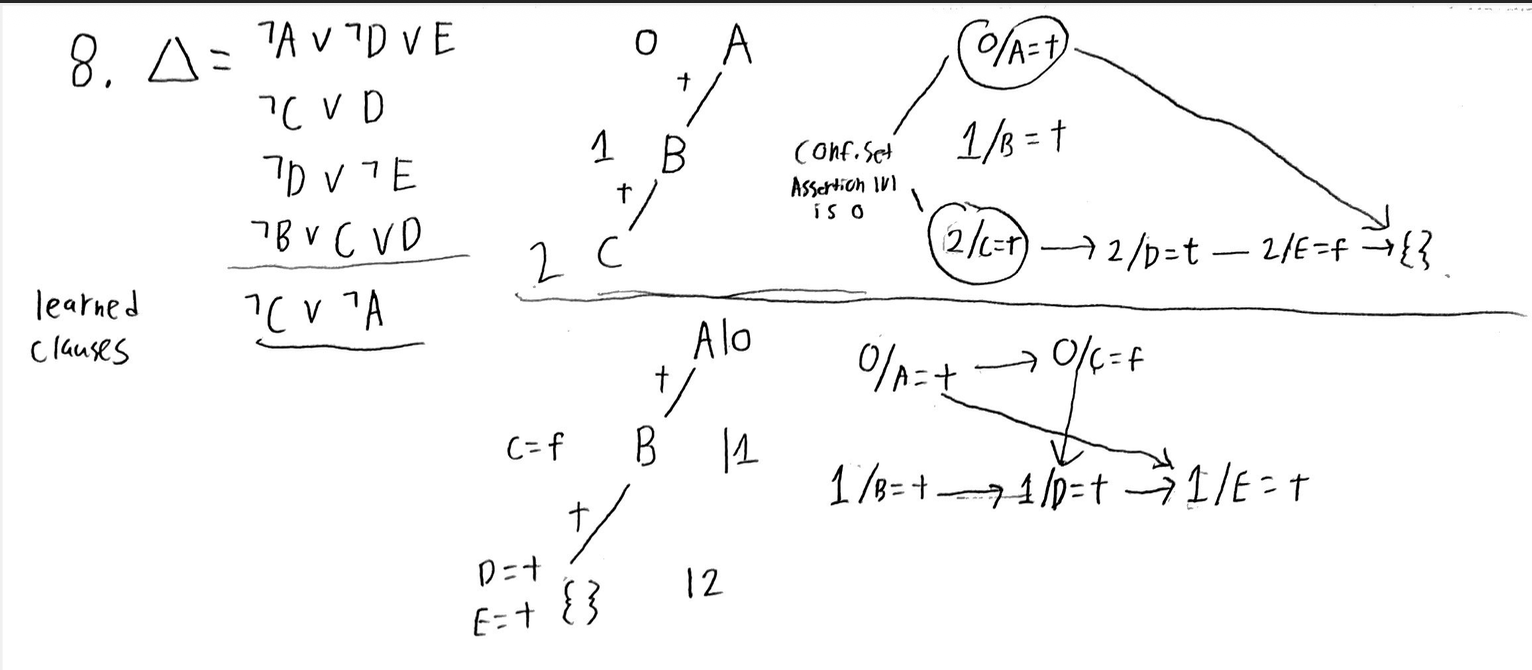 8. Δ = ¬A ∨ ¬D ∨ E
¬C ∨ D
¬D ∨ ¬E
¬B ∨ C ∨ D
learned
clauses
¬C ∨ ¬A
0 A
t
1 B
t
2 C
0/A=t
1/B=t
Conf. Set
Assertion lvl
is 0
2/C=t → 2/D=t — 2/E=f → {}
A|0
t
C=f B |1
t
D=t
E=t {} |2
0/A=t → 0/C=f
1/B=t → 1/D=t → 1/E=t